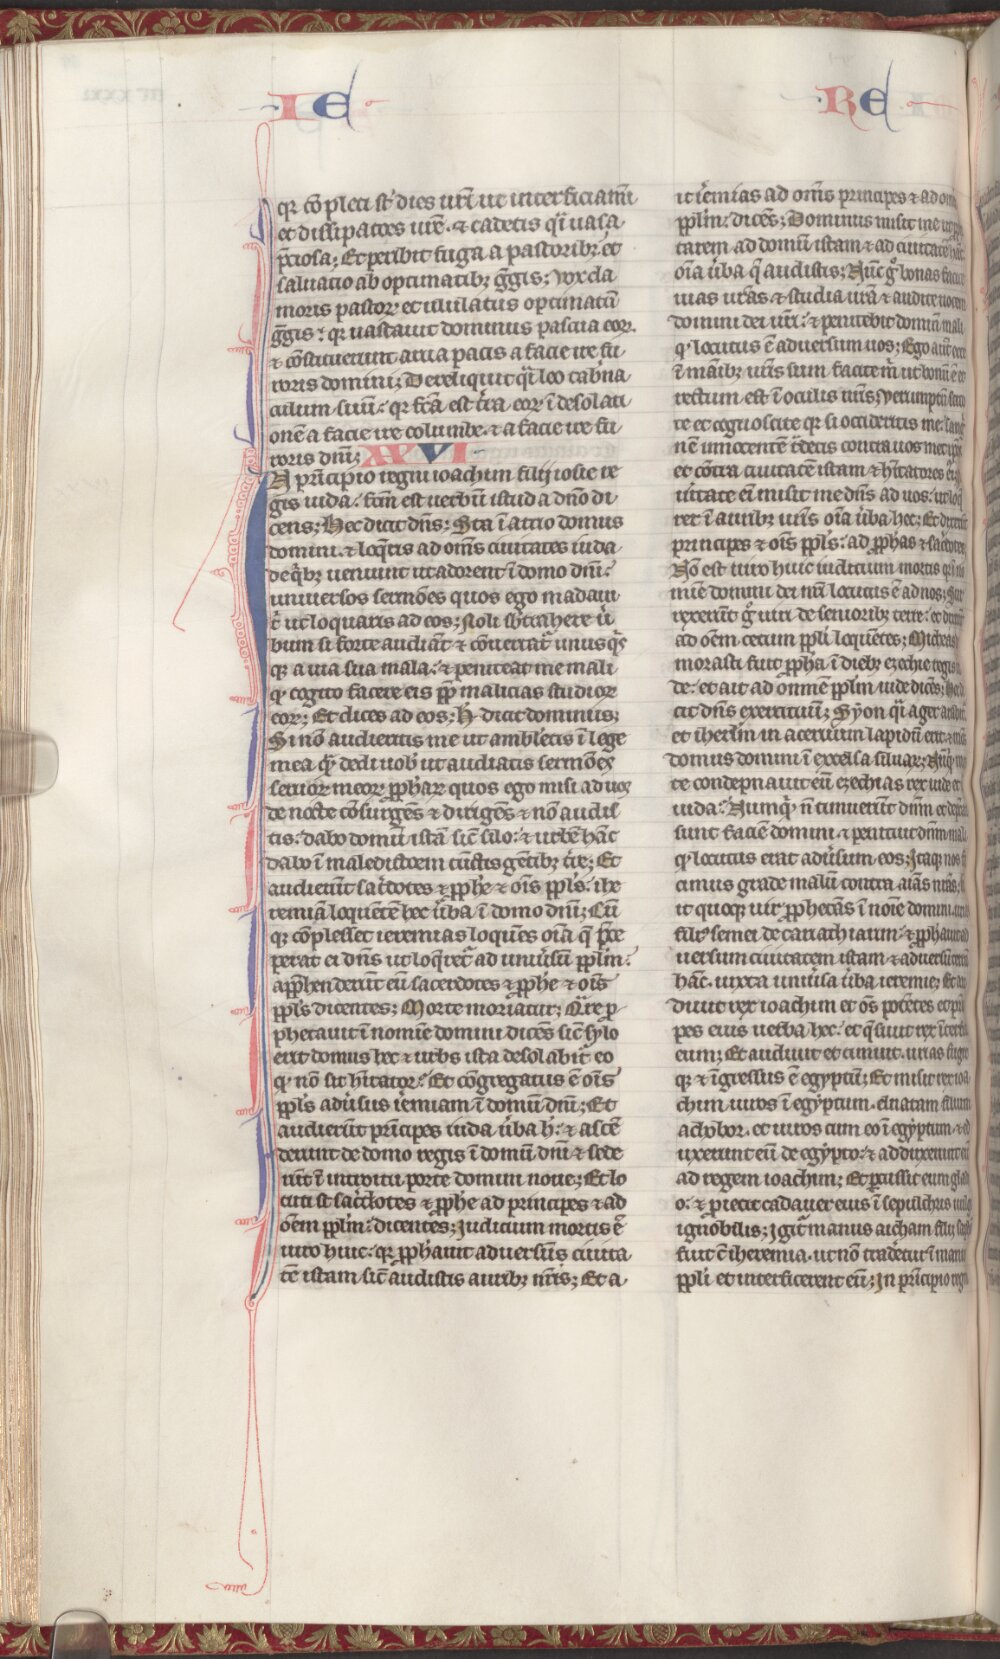 IE
RE
qr cōpleti st' dies ur̄i ut interficiam̄i
et dissipatōes ur̄e. et cadetis q̄i uasa
p̄ciosa; Et peribit fuga a pastorib; et
saluatio ab optimatib; ḡgis; Vox cla
moris pastor et ululatus optimatū
ḡgis: qr uastauit dominus pascua eor.
et cōticuerunt arua pacis a facie ire fu
roris domini; Dereliquit q̄i leo tab̄na
culum suū: qr fc̄a est t̄ra eor ī desolati
onē a facie ire columbe. et a facie ire fu
roris dn̄i; XXVI
In prīcipio regni ioachim filij iosie re
gis iuda: fc̄m est uerbū istud a dn̄o di
cens; Hec dicit dn̄s: Sta ī atrio domus
domini. et loq̄ris ad om̄s ciuitates iuda
de q̄b; ueniunt ut adorent ī domo dn̄i:
uniuersos sermōes quos ego mādaui
t̄ ut loquaris ad eos; Noli sb̄trahere ū
bum si forte audiāt et cōuertat̄ unusq̄s
q; a uia sua mala: et peniteat me mali
q̄ cogito facere eis pp̄ malicias studior
eor; Et dices ad eos; H dicit dominus;
Si nō audieritis me ut ambletis ī lege
mea q̄ dedi uob' ut audiatis sermōes
seruor meor pp̄har quos ego misi ad uos
de nocte cōsurgēs et dirigēs et nō audis
tis: dabo domū istā sic̄ silo: et urbē hāc
dabo ī maledictōem cūctis gētib; t̄re; Et
audierūt sac̄dotes et pp̄he et ois̄ ppl̄s: ihe
remiā loquētē hec ūba ī domo dn̄i; Cū
q; cōplesset ieremias loquēs oīa q̄ p̄ce
perat ei dn̄s ut loq̄ret̄ ad uniūsū ppl̄m:
app̄henderūt eū sacerdotes et pp̄he et ois̄
ppl̄s dicentes; Morte moriatur; Q̄re p
phetauit ī nomīe domini dicēs sic̄ sylo
erit domus hec et urbs ista desolabit̄ eo
q̄ nō sit hītator: Et cōgregatus ē ois̄
ppl̄s adūsus iēmiam ī domū dn̄i; Et
audierūt prīcipes iuda ūba h: et ascē
derunt de domo regis ī domū dn̄i et sede
rūt ī introitu porte domini noue; Et lo
cuti st sac̄dotes et pp̄he ad principes et ad
ōem ppl̄m: dicentes; Judicium mortis ē
uiro huic: qr pp̄hauit aduersus ciuita
tē istam sic̄ audistis aurib; ur̄is; Et a
it iēmias ad om̄s principes et ad om̄
ppl̄m: dicēs; Dominus misit me ut pp
tarem ad domū istam et ad ciuitatē hāc
oīa ūba q̄ audistis; Nūc g̊ bonas facite
uias ur̄as et studia ur̄a et audite uocem
domini dei ur̄i: et penitebit dominū mali
q̄ locutus ē aduersum uos; Ego aut̄ ecce
ī māib; ur̄is sum facite m̄ ut bonū ē et
rectum est ī oculis ur̄is; Verumptn̄ scito
te et cognoscite qr si occideritis me: sang
nē innocentē t̄detis contra uos met ip̄s
et cōtra ciuitatē istam et hītatores ei;
ūitate ei misit me dn̄s ad uos: ut loq̄
rer ī aurib; ur̄is oīa ūba hec; Et dixerūt
principes et ois̄ ppl̄s: ad pp̄has et sac̄dotes
Nō est uiro huic iudicium mortis qr ī no
mīe domini dei nr̄i locutus ē ad nos; Sur
rexerūt g̊ uiri de seniorib; terre: et dixerūt
ad ōem cetum ppl̄i loquētes; Micheas
morasti fuit pp̄ha ī dieb; ezechie regis iu
de: et ait ad omnē ppl̄m iude dicēs; hec di
cit dn̄s exercituū; Syon q̄i ager arabit̄
et iherl̄m in aceruum lapidū erit: et mōs
domus domini ī excelsa siluar; Nūq̄ mor
te condepnauit eū ezechias rex iude et ōis
iuda: Numq̄ n̄ timuerūt dn̄m et depcati
sunt faciē domini. et penituit dn̄m mali
q̄ locutus erat adūsum eos; Itaq; nos fa
cimus grāde malū contra aīas nr̄as; fu
it quoq; uir pp̄hetās ī noīe domini. urias
fili' semei de cariathiarim: et pp̄hauit ad
uersum ciuitatem istam et aduersū terrā
hāc. iuxta uniūsa ūba ieremie; Et au
diuit rex ioachim et ōs potētes et prī
pes eius uerba hec: et q̄siuit rex īterfic
eum; Et audiuit et timuit. urias fugit
q; et īgressus ē egyptū; Et misit rex ioa
chim uiros ī egyptum. elnatam filium
achobor. et uiros cum eo ī egyptum. et ed
uxerunt eū de egypto: et adduxerunt eū
ad regem ioachim; Et percussit eum gladi
o: et proiecit cadauer eius ī sepulchris uulgi
ignobilis; Igit̄ manus aicham filij saph
fuit c̄ iheremia. ut nō traderetur ī manu
ppl̄i et interficerent eū; In prīcipio regni